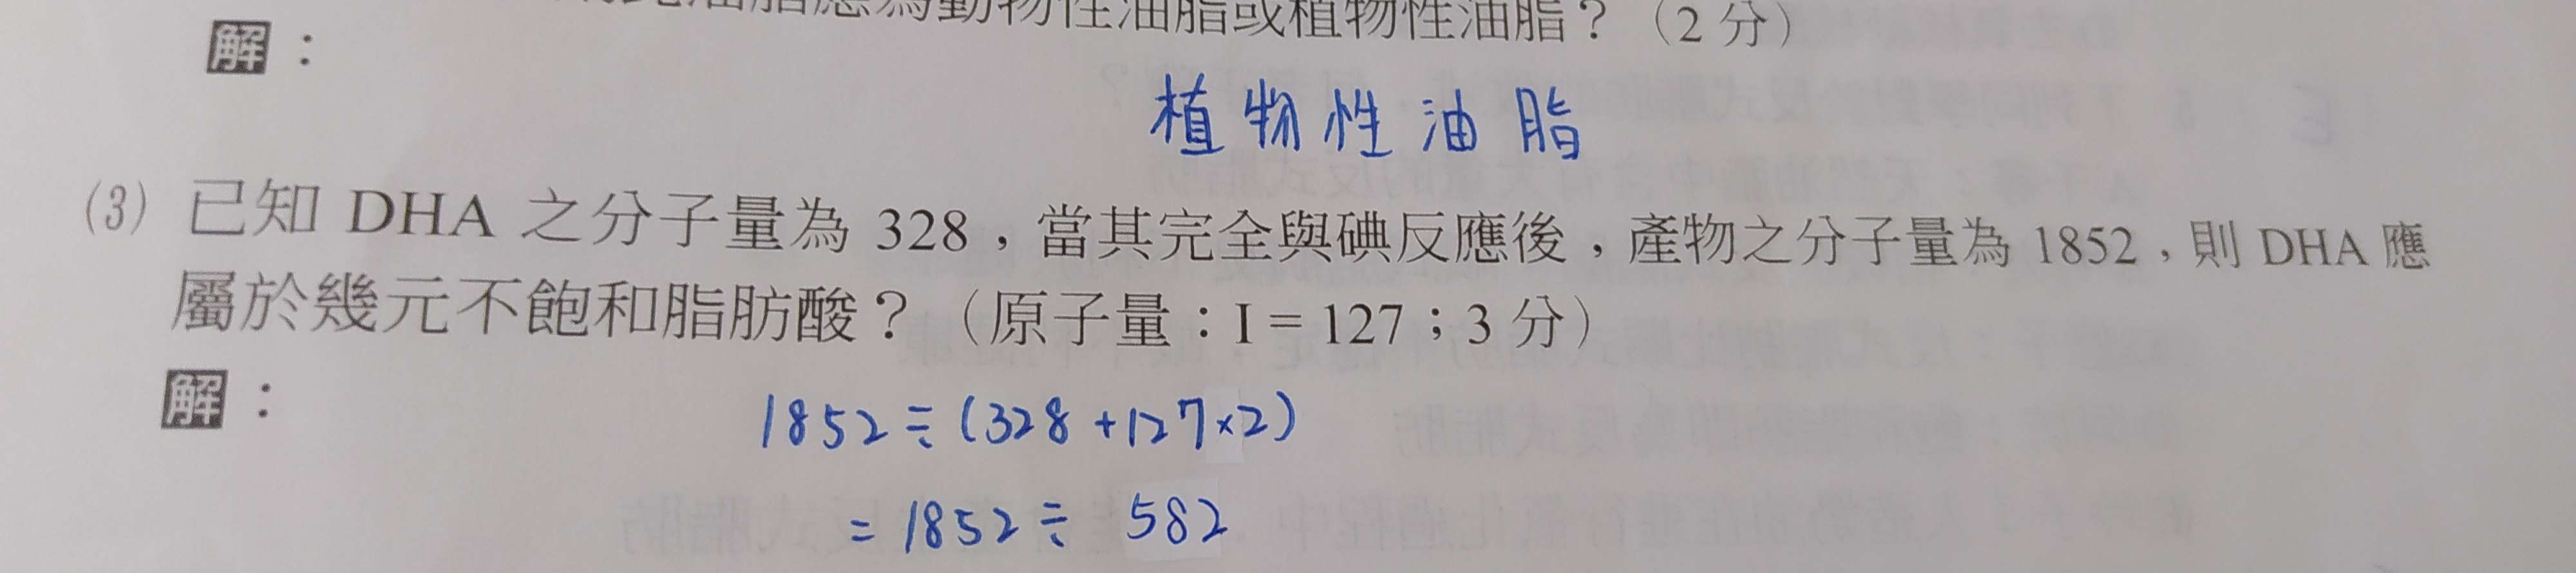 油脂應為動物性油脂或植物性油脂？（2 分）
解：
植物性油脂
(3) 已知 DHA 之分子量為 328，當其完全與碘反應後，產物之分子量為 1852，則 DHA 應
屬於幾元不飽和脂肪酸？（原子量：I = 127；3 分）
解：
1852 ÷ (328 + 127×2)
= 1852 ÷ 582